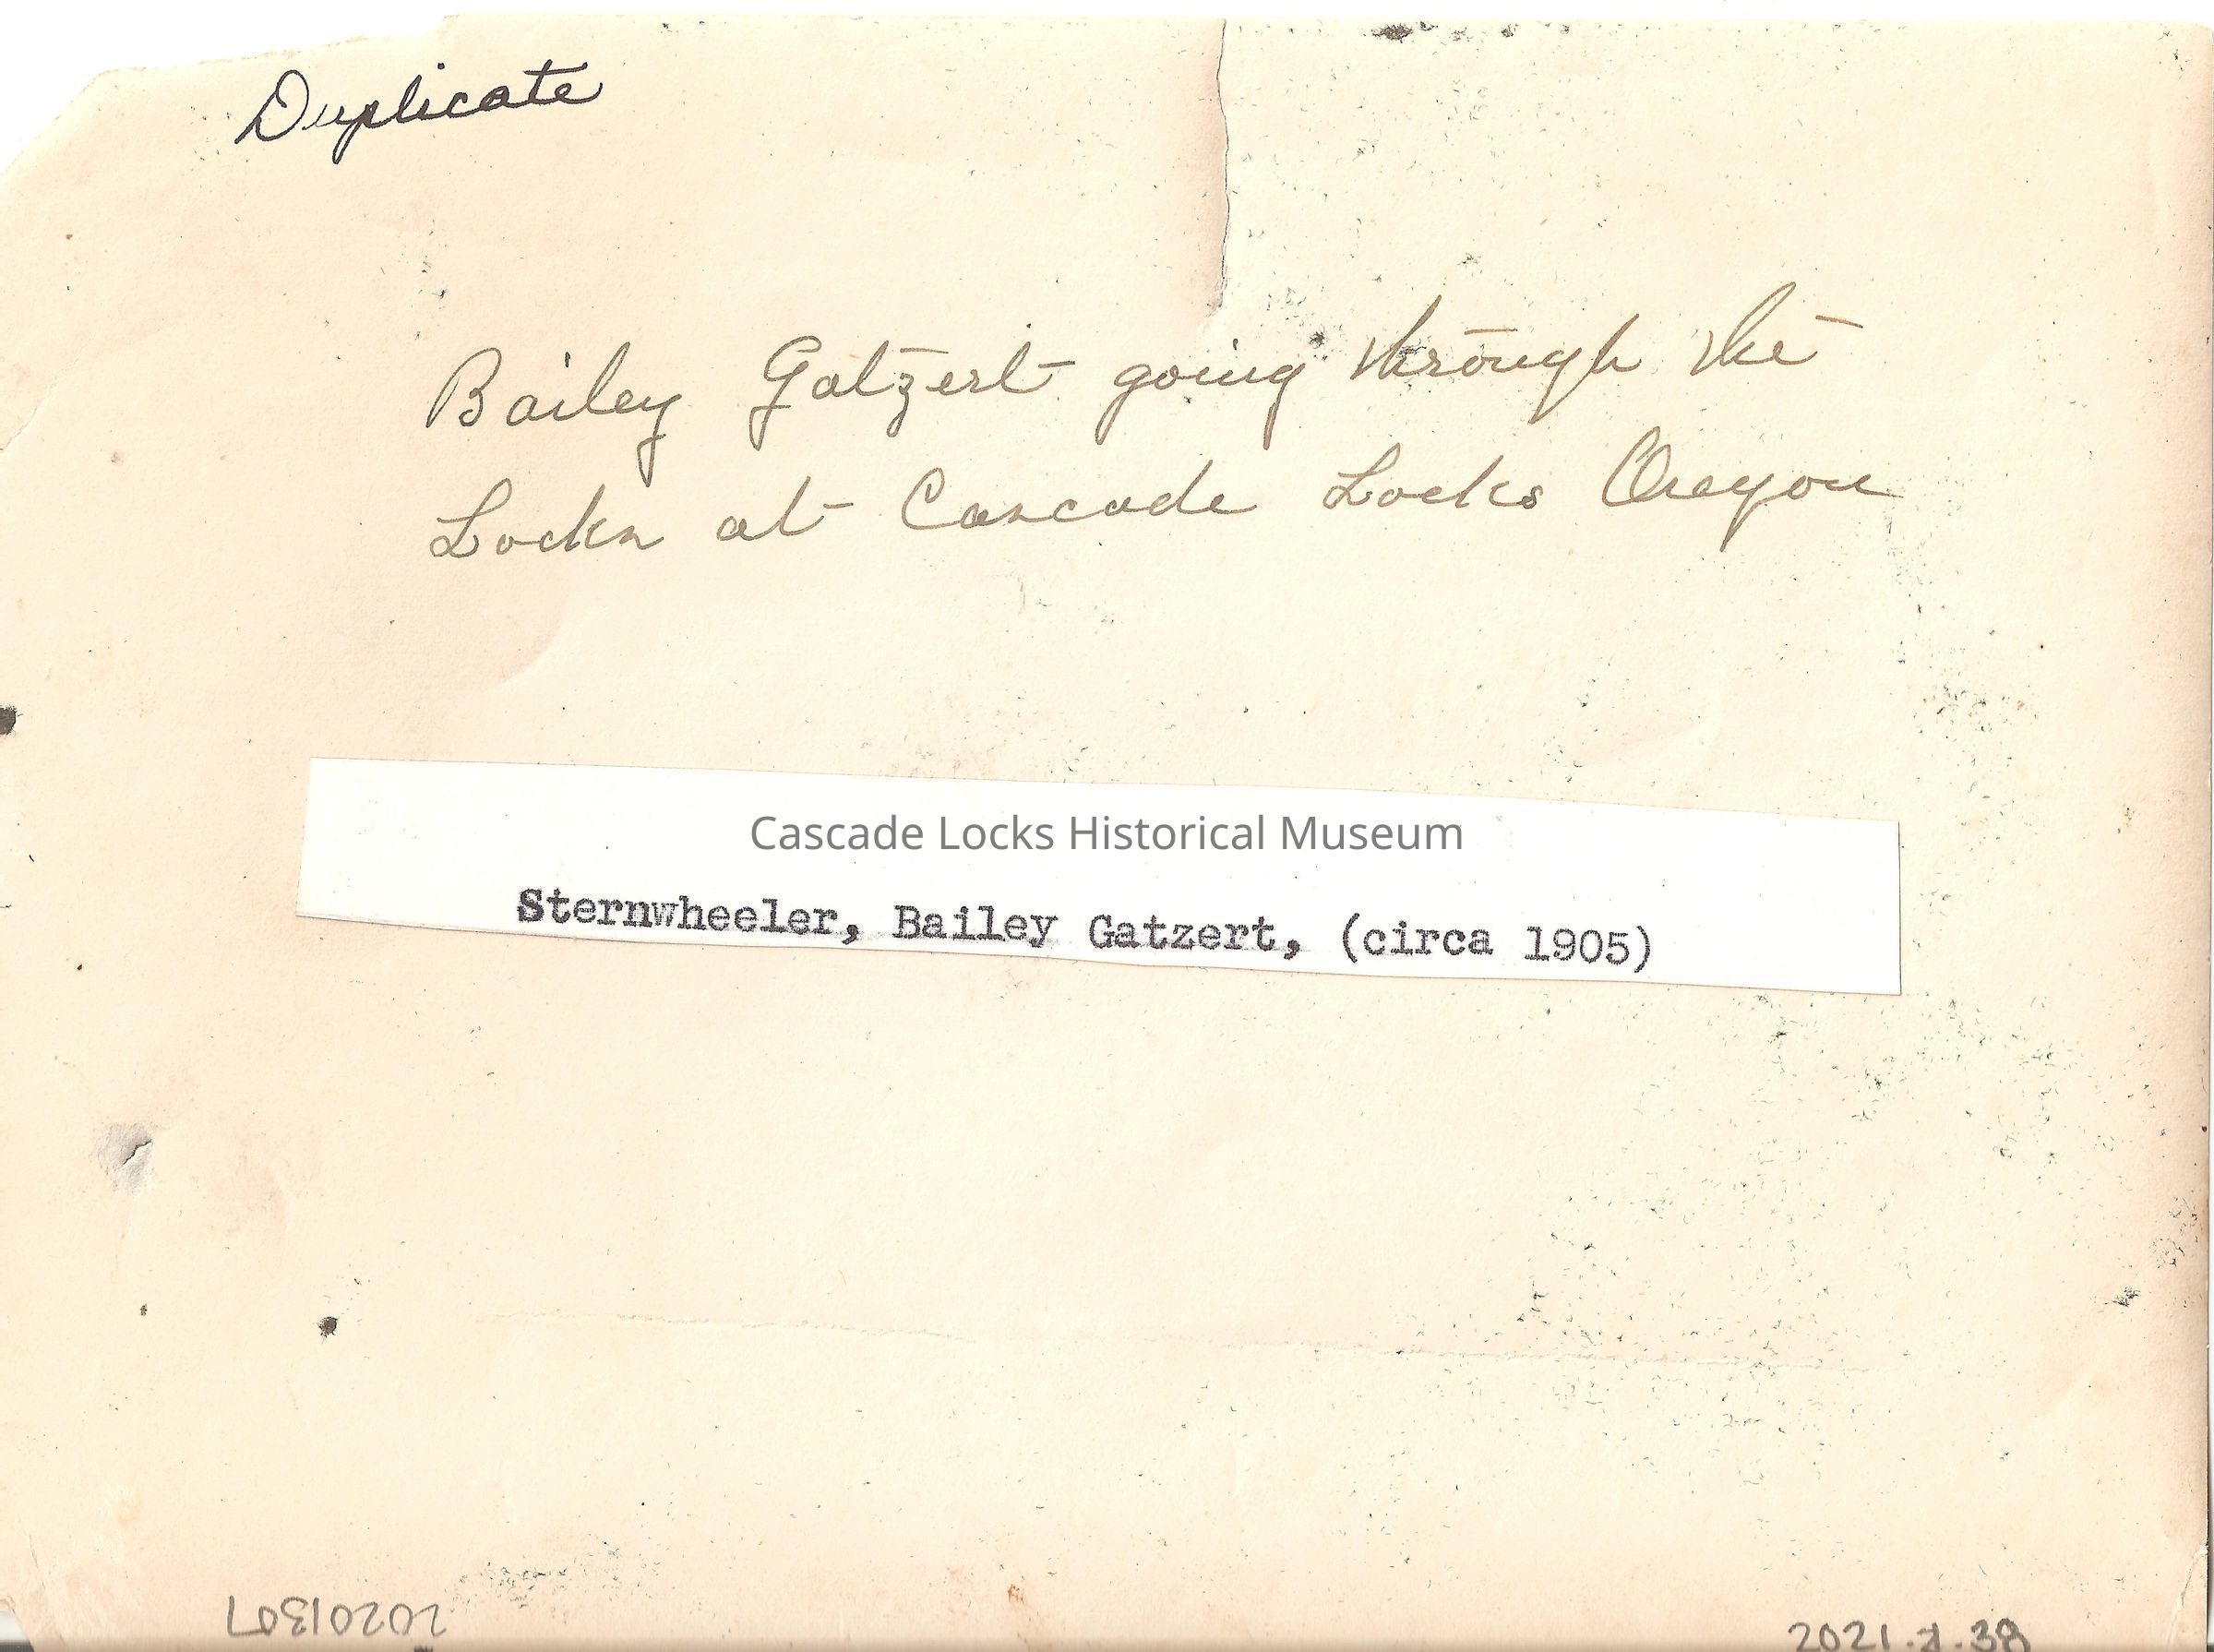 Duplicate
Bailey Gatzert going through the
Locks at Cascade Locks Oregon
Cascade Locks Historical Museum
Sternwheeler, Bailey Gatzert, (circa 1905)
20201307